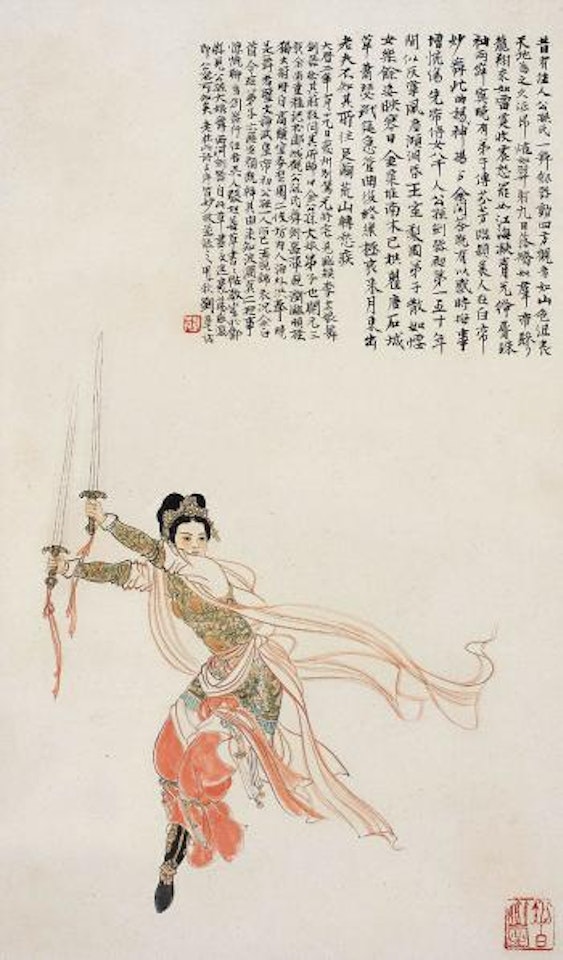 昔有佳人公孫氏一舞劍器動四方觀者如山色沮喪
天地為之久低昂㸌如羿射九日落矯如羣帝驂
龍翔來如雷霆收震怒罷如江海凝青光絳脣珠
袖兩寂寞晚有弟子傳芬芳臨潁美人在白帝
妙舞此曲神揚揚與余問答既有以感時撫事
增惋傷先帝侍女八千人公孫劍器初第一五十年
間似反掌風塵澒洞昏王室梨園弟子散如煙
女樂餘姿映寒日金粟堆南木已拱瞿唐石城
草蕭瑟玳筵急管曲復終樂極哀來月東出
老夫不知其所往足繭荒山轉愁疾
大曆二年十月十九日夔州別駕元持宅見臨潁李十二娘舞
劍器壯其蔚跂問其所師曰余公孫大娘弟子也開元三
載余尚童稚記於郾城觀公孫氏舞劍器渾脫瀏灕頓挫
獨出冠時自高頭宜春梨園二伎坊內人洎外供奉曉
是舞者聖文神武皇帝初公孫一人而已玉貌錦衣況余白
首今茲弟子亦匪盛顏既辨其由來知波瀾莫二撫事
慷慨聊為劍器行往者吳人張旭善草書書帖數常於鄴
縣見公孫大娘舞西河劍器自此草書長進豪蕩感激
即公孫可知矣